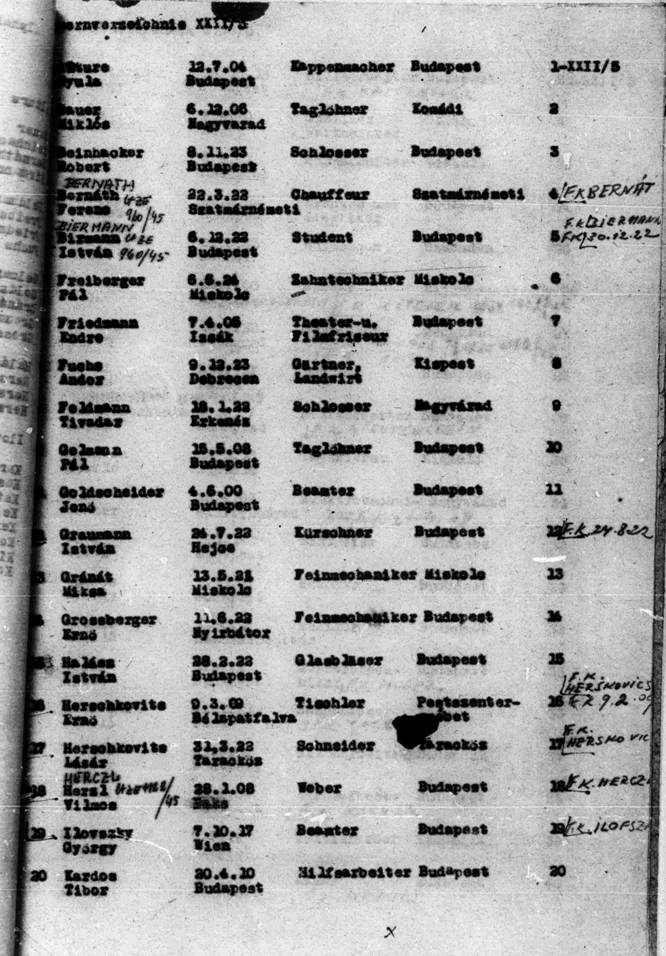 XXII/5
12.7.04 Kappenmacher Budapest 1-XXII/5
Budapest
6.12.06 Taglöhner Komádi 2
Miklós Nagyvarad
Beinhacker 8.11.23 Schlosser Budapest 3
Robert Budapest
BERNATH
Bernáth 22.3.22 Chauffeur Szatmárnémeti 4 F.K BERNÁT
Ferenc 960/45 Szatmárnémeti
BIERMANN F.K BIERMANN
Birmann 6.12.22 Student Budapest 5 F.K 30.12.22
István 960/45 Budapest
Freiberger 6.6.24 Zahntechniker Miskolc 6
Pál Miskolc
Friedmann 7.4.05 Theater-u. Budapest 7
Endre Izsák Filmfriseur
Fuchs 9.12.23 Gärtner, Kispest 8
Andor Debrecen Landwirt
Feldmann 18.1.22 Schlosser Nagyvárad 9
Tivadar
Gelmann 15.5.08 Taglöhner Budapest 10
Pál Budapest
Goldscheider 4.6.00 Beamter Budapest 11
Jenő Budapest
Graumann 24.7.22 Kürschner Budapest 12 F.K 24.8.22
István Hejce
Gránát 13.5.21 Feinmechaniker Miskolc 13
Miksa Miskolc
Grossberger 11.6.22 Feinmechaniker Budapest 14
Ernő Nyirbátor
Halász 28.2.22 Glasbläser Budapest 15
István Budapest
F.K.
HERSKOVICS
16 Herschkovits 9.3.09 Tischler Pestszenter- 16 9.2.09
Ernő Bélapatfalva
F.K.
17 Herschkovits 31.3.22 Schneider Taracköz 17 HERSKOVIC
Lázár Taracköz
HERCZL
18 Herzl 28.1.08 Weber Budapest 18 F.K. HERCZL
Vilmos /45 Baks
19 Ilovszky 7.10.17 Beamter Budapest 19 F.K. ILOFSZ
György Wien
20 Kardos 20.4.10 Hilfsarbeiter Budapest 20
Tibor Budapest
x